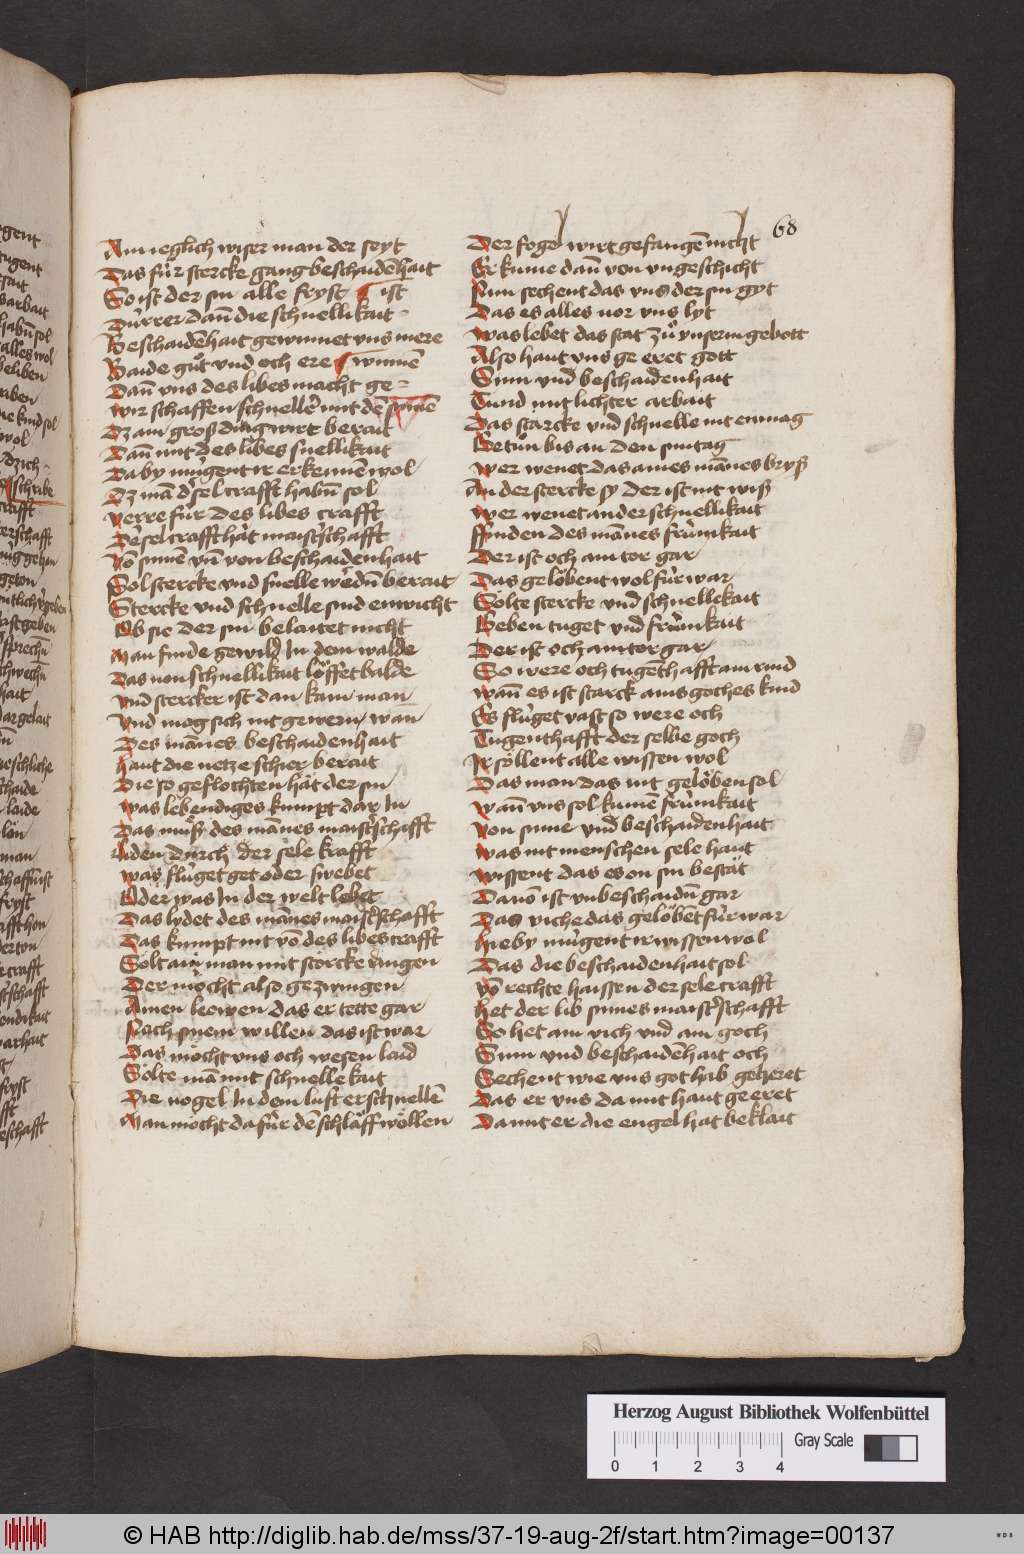 68
Ain ieglich wiser man der seyt
Das für stercke gang beschaidēhait
So ist der sin alle fryst ist
Dürrer dañ die schnellikait
Beschaidēhait gewinnet vns mere
Baide gůt vnd och ere winnē
Dañ vns des libes macht ge-
Wir schaffen schneller mit dē sinnē
Dz ain groß ding wirt berait
Dañ mit des libes snellikait
Da by mügent ir erkennē wol
Dz mā d'sel crafft habn̄ sol
Verre für des libes crafft
De sel crafft hät maist'schafft
Vō sinnē vn̄ von beschaidenhait
Sol stercke vnd snelle wedn̄ berait
Stercke vnd schnelle sind enwicht
Ob sie der sin belaitet nicht
Man finde gewild In dem walde
Das von schnellikait löffet balde
Vnd stercker ist dan kain man
Vnd mag sich nit gewern wan
Des mānes beschaidenhait
Haut die netze schier berait
Die so geflochten hät der sin
Was lebendiges kumpt dar In
Das můß des mānes maist'schafft
Liden durch der sele krafft
Was flüget get oder swebet
Oder was In der welt lebet
Das lydet des mānes maist'schafft
Das kumpt nit vō des libes crafft
Solt ain man mit stercke ringen
Der möcht also gezwingen
Ainen leowen das er tette gar
Nach sinem willen das ist war
Das möcht vns och wesen laid
Solte mā mit schnellekait
Die vogel In dem luft erschnellē
Man möcht da für dē schlaff wöllen
Der fogel wirt gefangē nicht
Er kume dañ von vngeschicht
Nun sechent das vns der sin gyt
Das es alles vor vns lyt
Was lebet das stat zů vnserm gebott
Also haut vns ge eret gott
Sinn vnd beschaidenhait
Tund mit lichter arbait
Das starcke vnd schnelle nit enmag
Getůn bis an den suntag
Wer wenet das aines mānes bryß
An der stercke sy der ist nit wiß
Wer wenet an der schnellikait
Ffinden des mānes frümkait
Der ist och ain tor gar
Das gelöbent wol für war
Solte stercke vnd schnellekait
Geben tuget vnd frümkait
Der ist och ain tor gar
So were och tugēthafft ain rind
Wañ es ist starck ains goches kind
Es flüget vast so were och
Tugenthafft der selbe goch
Ir söllent alle wissen wol
Das man das nit gelöben sol
Wañ vns sol kume frümkait
Von sinne vnd beschaidenhait
Was nit menschen sele haut
Wissent das es on sin bestät
Dauō ist vnbeschaidn̄ gar
Das viche das gelöbēt für war
Hie by mügent ir wissen wol
Das die beschaidenhait sol
Vō rechte haissen der sele crafft
Het der lib sinnes maist'schafft
So het ain vich vnd ain goch
Sinn vnd beschaidēhait och
Sechent wie vns got hab geheret
Das er vns da mit haut geeret
Da mit er die engel hat beklait
Herzog August Bibliothek Wolfenbüttel
Gray Scale
0 1 2 3 4
© HAB http://diglib.hab.de/mss/37-19-aug-2f/start.htm?image=00137